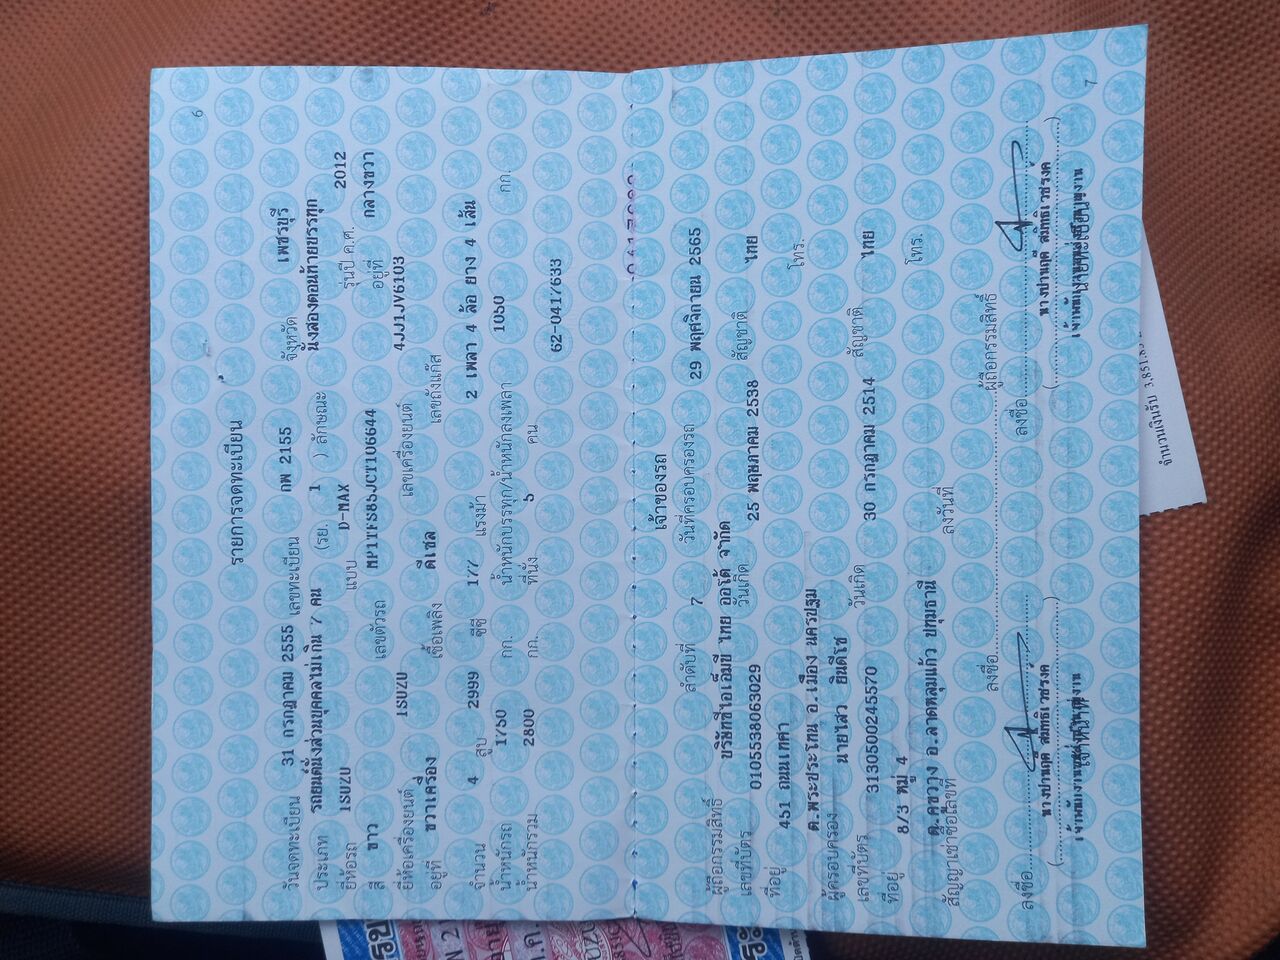 6
รายการจดทะเบียน
วันจดทะเบียน 31 กรกฎาคม 2555 เลขทะเบียน กพ 2155 จังหวัด เพชรบุรี
ประเภท รถยนต์นั่งส่วนบุคคลไม่เกิน 7 คน (รย. 1 ) ลักษณะ นั่งสองตอนท้ายบรรทุก
ยี่ห้อรถ ISUZU แบบ D-MAX รุ่นปี ค.ศ. 2012
สี ขาว เลขตัวรถ MP1TFS85JCT106644 อยู่ที่ กลางขวา
ยี่ห้อเครื่องยนต์ ISUZU เลขเครื่องยนต์ 4JJ1JV6103
อยู่ที่ ขวาเครื่อง เชื้อเพลิง ดีเซล เลขถังแก๊ส
จำนวน 4 สูบ 2999 ซีซี 177 แรงม้า 2 เพลา 4 ล้อ ยาง 4 เส้น
น้ำหนักรถ 1750 กก. น้ำหนักบรรทุก/น้ำหนักลงเพลา 1050 กก.
น้ำหนักรวม 2800 กก. ที่นั่ง 5 คน
62-0417633
เจ้าของรถ
ลำดับที่ 7 วันที่ครอบครองรถ 29 พฤศจิกายน 2565
ผู้ถือกรรมสิทธิ์ บริษัทซีไอเอ็มบี ไทย ออโต้ จำกัด
เลขที่บัตร 0105538063029 วันเกิด 25 พฤษภาคม 2538 สัญชาติ ไทย
ที่อยู่ 451 ถนนเทศา โทร.
ต.พระประโทน อ.เมือง นครปฐม
ผู้ครอบครอง นายไสว ยินดีโช
เลขที่บัตร 3130500245570 วันเกิด 30 กรกฎาคม 2514 สัญชาติ ไทย
ที่อยู่ 8/3 หมู่ 4 โทร.
ต.คูขวาง อ.ลาดหลุมแก้ว ปทุมธานี
สัญญาเช่าซื้อเลขที่ ลงวันที่
ลงชื่อ ผู้ถือกรรมสิทธิ์
ลงชื่อ ลงชื่อ
เจ้าหน้าที่ นายทะเบียน
7
จำนวนเงินรับ